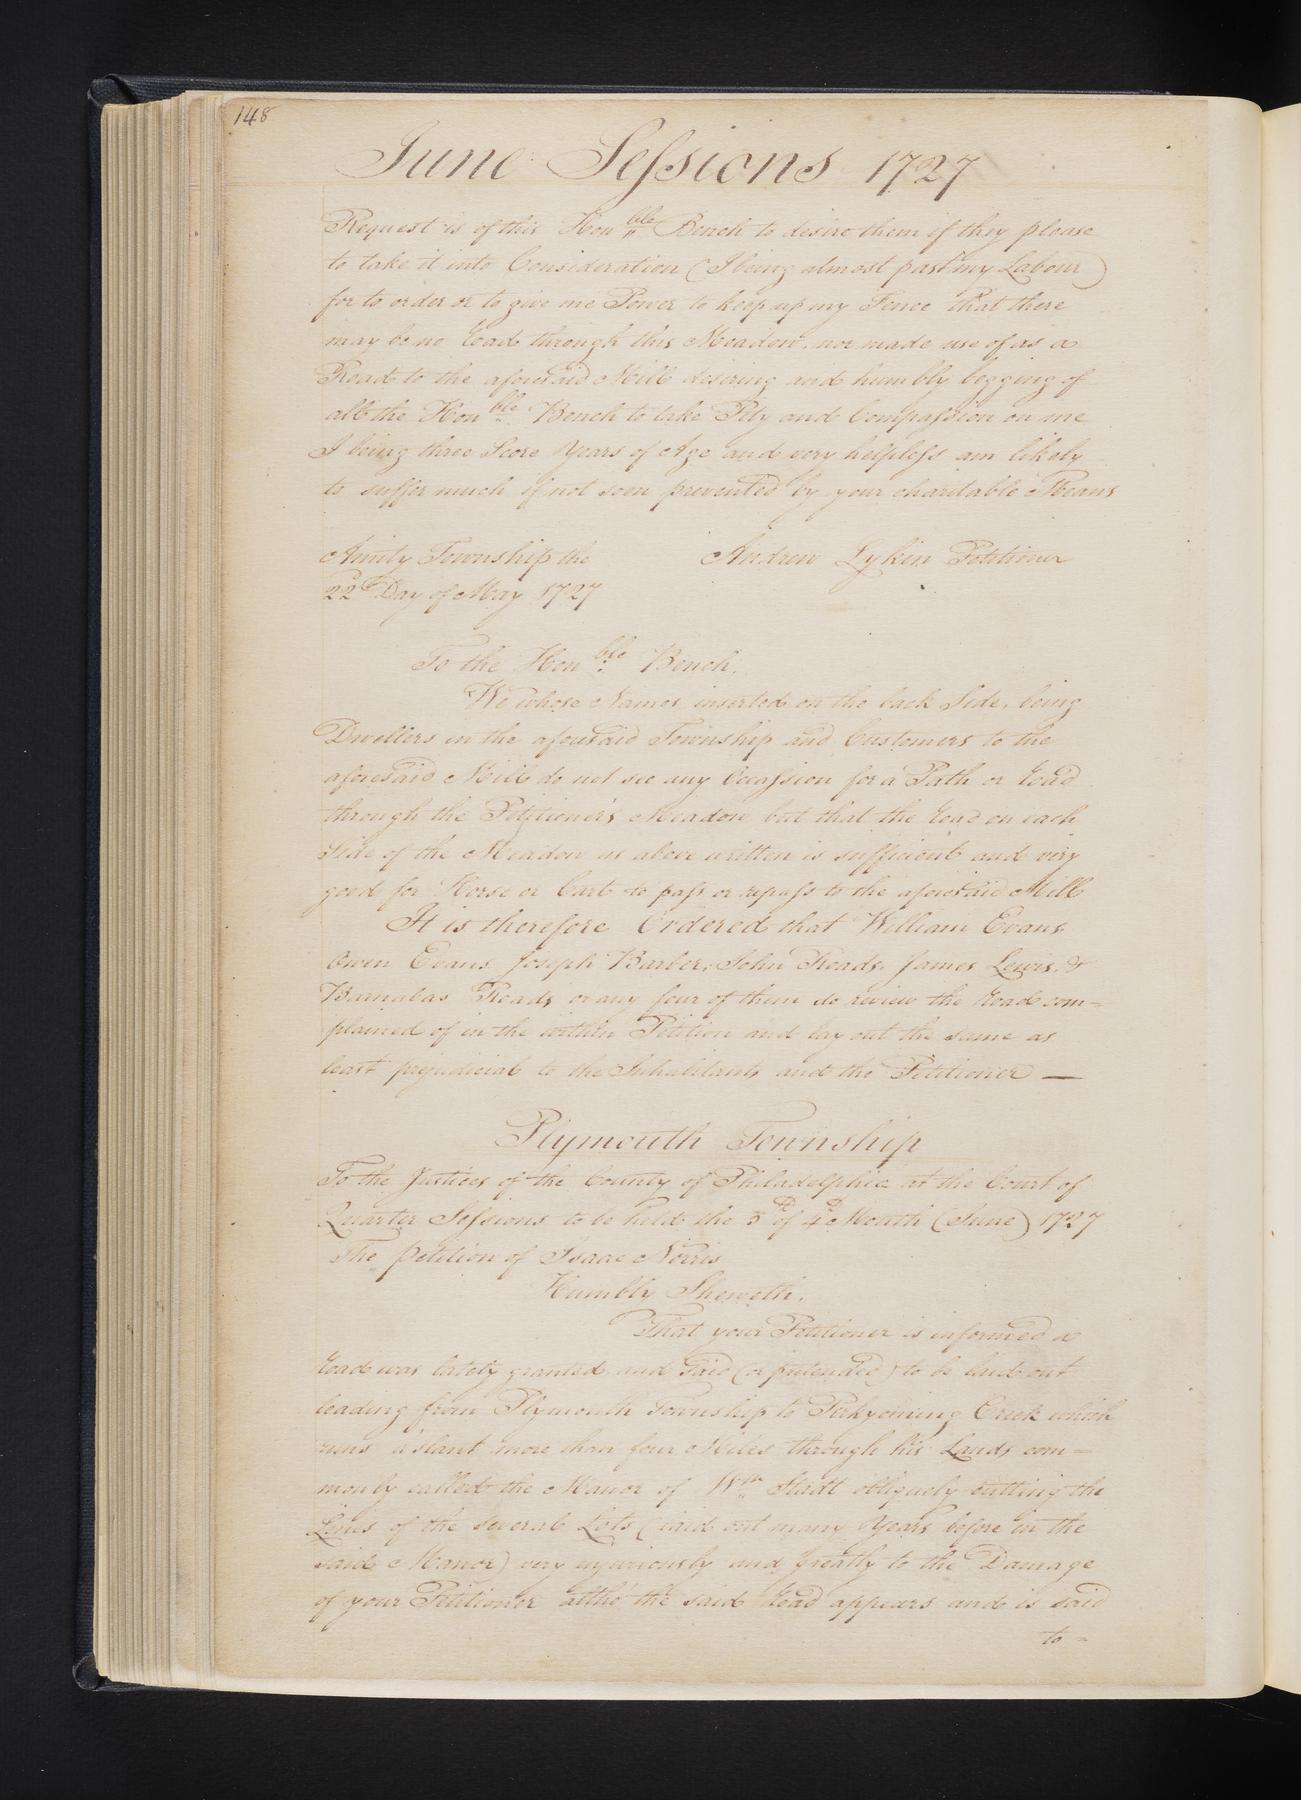 148
June Sessions 1727
Request is of this Hon.ble Bench to desire them if they please
to take it into Consideration (I being almost past my Labour)
for to order or to give me Power to keep up my Fence that there
may be no Road through this Meadow, nor made use of as a
Road to the aforesaid Mill desiring and humbly begging of
all the Hon.ble Bench to take Pity and Compassion on me
I being three Score Years of Age and very helpless am likely
to suffer much if not soon prevented by your charitable Means
Amity Township the Andrew Lykin Petitioner
22d Day of May 1727
To the Hon.ble Bench.
We whose Names inserted on the back Side, being
Dwellers in the aforesaid Township and Customers to the
aforesaid Mill do not see any Occassion for a Path or Road
through the Petitioner's Meadow but that the Road on each
Side of the Meadow as above written is sufficient and very
good for Horse or Cart to pass or repass to the aforesaid Mill
It is therefore Ordered that William Evans
Owen Evans Joseph Barber, John Roads, James Lewis, &
Barnabas Roads or any four of them do review the Road com=
plained of in the within Petition and lay out the same as
least prejudicial to the Inhabitants and the Petitioner —
Plymouth Township
To the Justices of the County of Philadelphia at the Court of
Quarter Sessions to be held the 5th of 4th Month (June) 1727
The petition of Isaac Norris
Humbly Sheweth.
That your Petitioner is informed a
Road was lately granted and said (or pretended) to be laid out
leading from Plymouth Township to Perkyoming Creek which
runs a slant more than four Miles through his Lands com=
monly called the Manor of Wm Stadt obliquely cutting the
Lines of the several Lots (laid out many Years before in the
said Manor) very injuriously and greatly to the Damage
of your Petitioner altho' the said Road appears and is said
to -